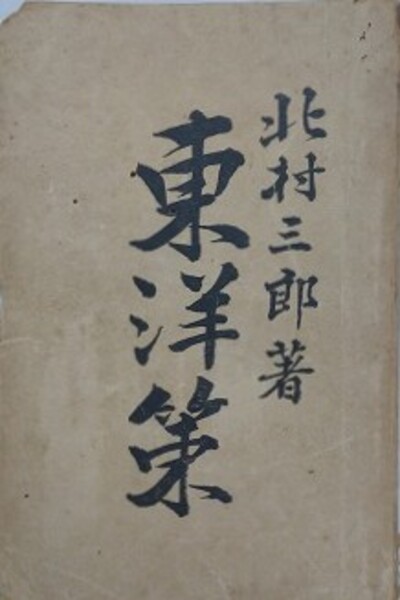 北村三郎著
東洋策